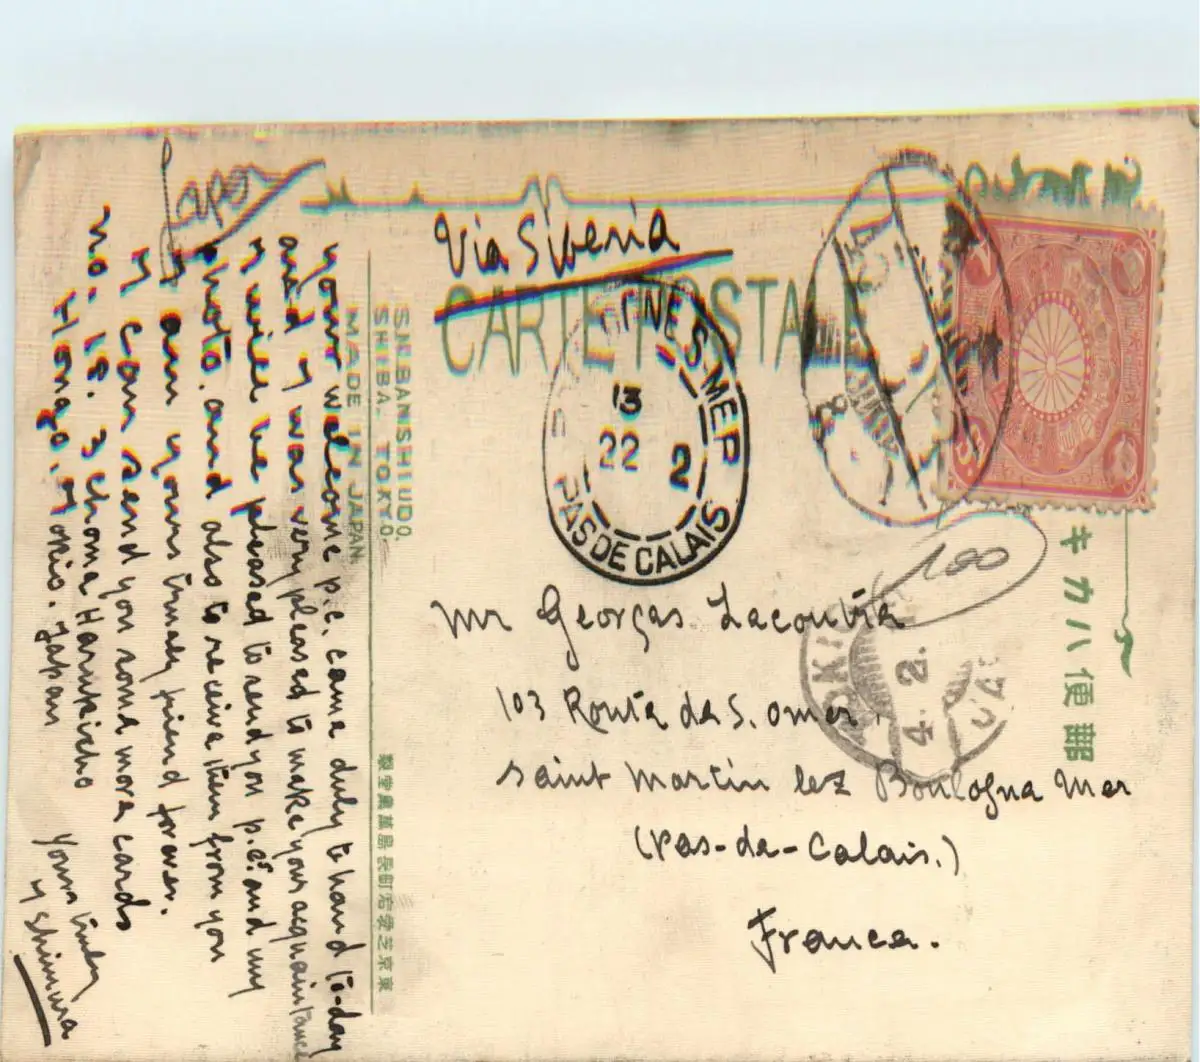 Japon
Via Siberia
CARTE POSTALE
S.N.BANSHIUDO.
SHIBA. TOKYO.
MADE IN JAPAN
東京芝愛宕町
キカハ便郵
13
22 2
PAS DE CALAIS
100
4. 2.
Mr Georges Lacouvia
103 Route de S. omer.
saint Martin lez Boulogna Mer
(Pas-de-Calais.)
France.
your welcome p.c. came duly to hand to-day
and y was very pleased to make your acquaintance
y will be pleased to send you p.cs. and my
photo. and also to receive them from you
y am yours truely friend forever.
y can send you some more cards
no. 18. 3 chome Harukicho
Hongo, Tokio. Japan
Yours truly
y Shimura